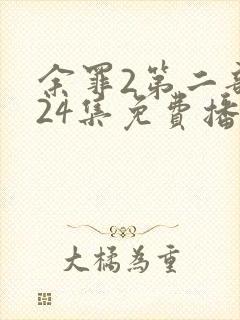 余罪2第二部
24集免费播
大橘为重